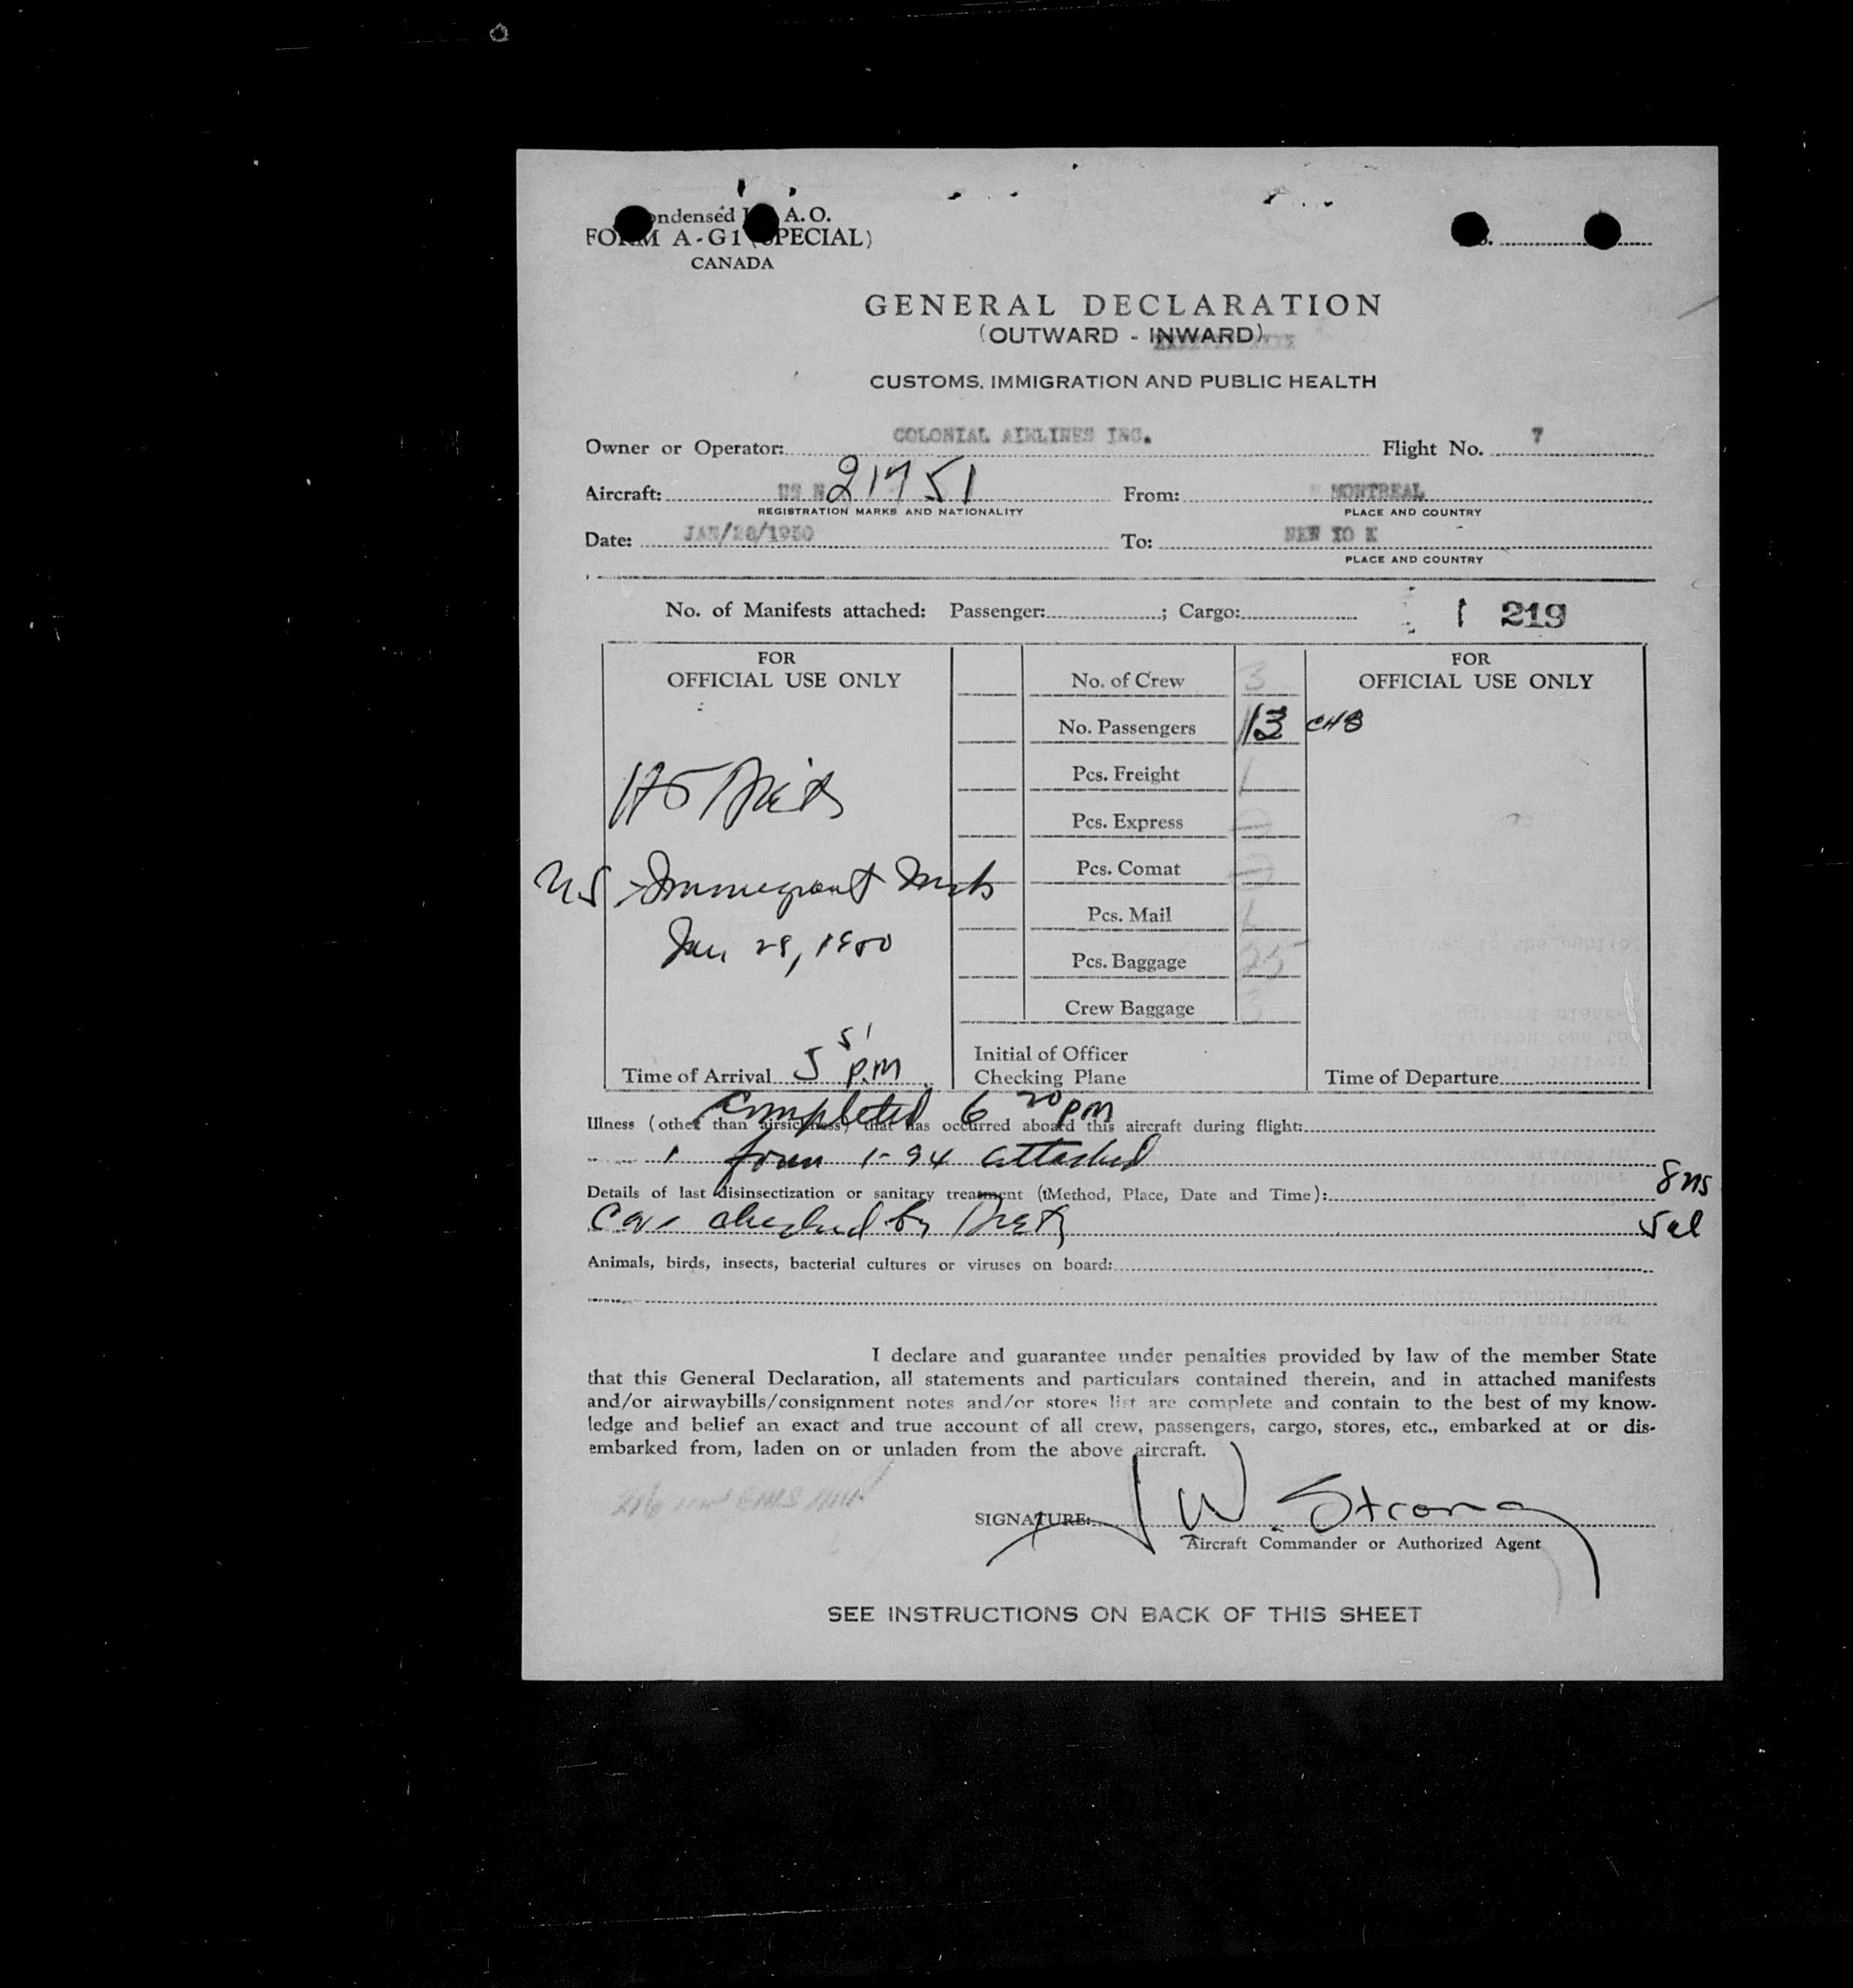 ondensed I A.O.
FORM A-G1 (SPECIAL)
CANADA
GENERAL DECLARATION
(OUTWARD - INWARD)
CUSTOMS, IMMIGRATION AND PUBLIC HEALTH
Owner or Operator: COLONIAL AIRLINES INC. Flight No. 7
Aircraft: US N 21751 From: MONTREAL
REGISTRATION MARKS AND NATIONALITY PLACE AND COUNTRY
Date: JAN/28/1950 To: NEW YO K
PLACE AND COUNTRY
No. of Manifests attached: Passenger: ; Cargo: 1 219
FOR
OFFICIAL USE ONLY
US Immigrant
Jan 28, 1950
Time of Arrival 5 51 P.M
No. of Crew 3
No. Passengers 13 CHB
Pcs. Freight 1
Pcs. Express
Pcs. Comat
Pcs. Mail 1
Pcs. Baggage 25
Crew Baggage 3
Initial of Officer
Checking Plane
FOR
OFFICIAL USE ONLY
Time of Departure
Completed 6 20 PM
Illness (other than airsickness) that has occurred aboard this aircraft during flight:
1 form 1-94 attached
Details of last disinsectization or sanitary treatment (Method, Place, Date and Time):
8 ns
checked by
5 al
Animals, birds, insects, bacterial cultures or viruses on board:
I declare and guarantee under penalties provided by law of the member State
that this General Declaration, all statements and particulars contained therein, and in attached manifests
and/or airwaybills/consignment notes and/or stores list are complete and contain to the best of my know-
ledge and belief an exact and true account of all crew, passengers, cargo, stores, etc., embarked at or dis-
embarked from, laden on or unladen from the above aircraft.
SIGNATURE: J W. Strong
Aircraft Commander or Authorized Agent
SEE INSTRUCTIONS ON BACK OF THIS SHEET